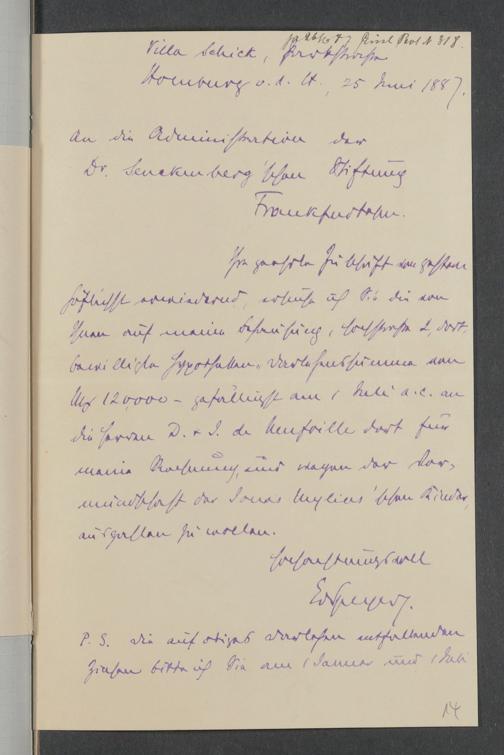 pr. 26/6 87
Villa Schick, Parkstrasse
Homburg v. d. H., 25 Juni 1887.
An die Administration der
Dr. Senckenberg'schen Stiftung
Frankfurtahm.
Ihre geehrte Zuschrift von gestern
höflichst erwiedernd, ersuche ich Sie die von
Ihnen auf meine Behausung, Hochstrasse 2, dort,
bewilligte Hypotheken-Darlehenssumme von
120000 – gefälligst am 1 Juli a.c. an
die Herren D. & J. de Neufville dort für
meine Rechnung, und wegen der Vor-
mundschaft der Jonas Mylius'schen Kinder,
auszahlen zu wollen.
Hochachtungsvoll
EdSpeyer.
P. S. Die auf obiges Darlehen entfallenden
Zinsen bitte ich Sie am 1 Januar und 1 Juli
14